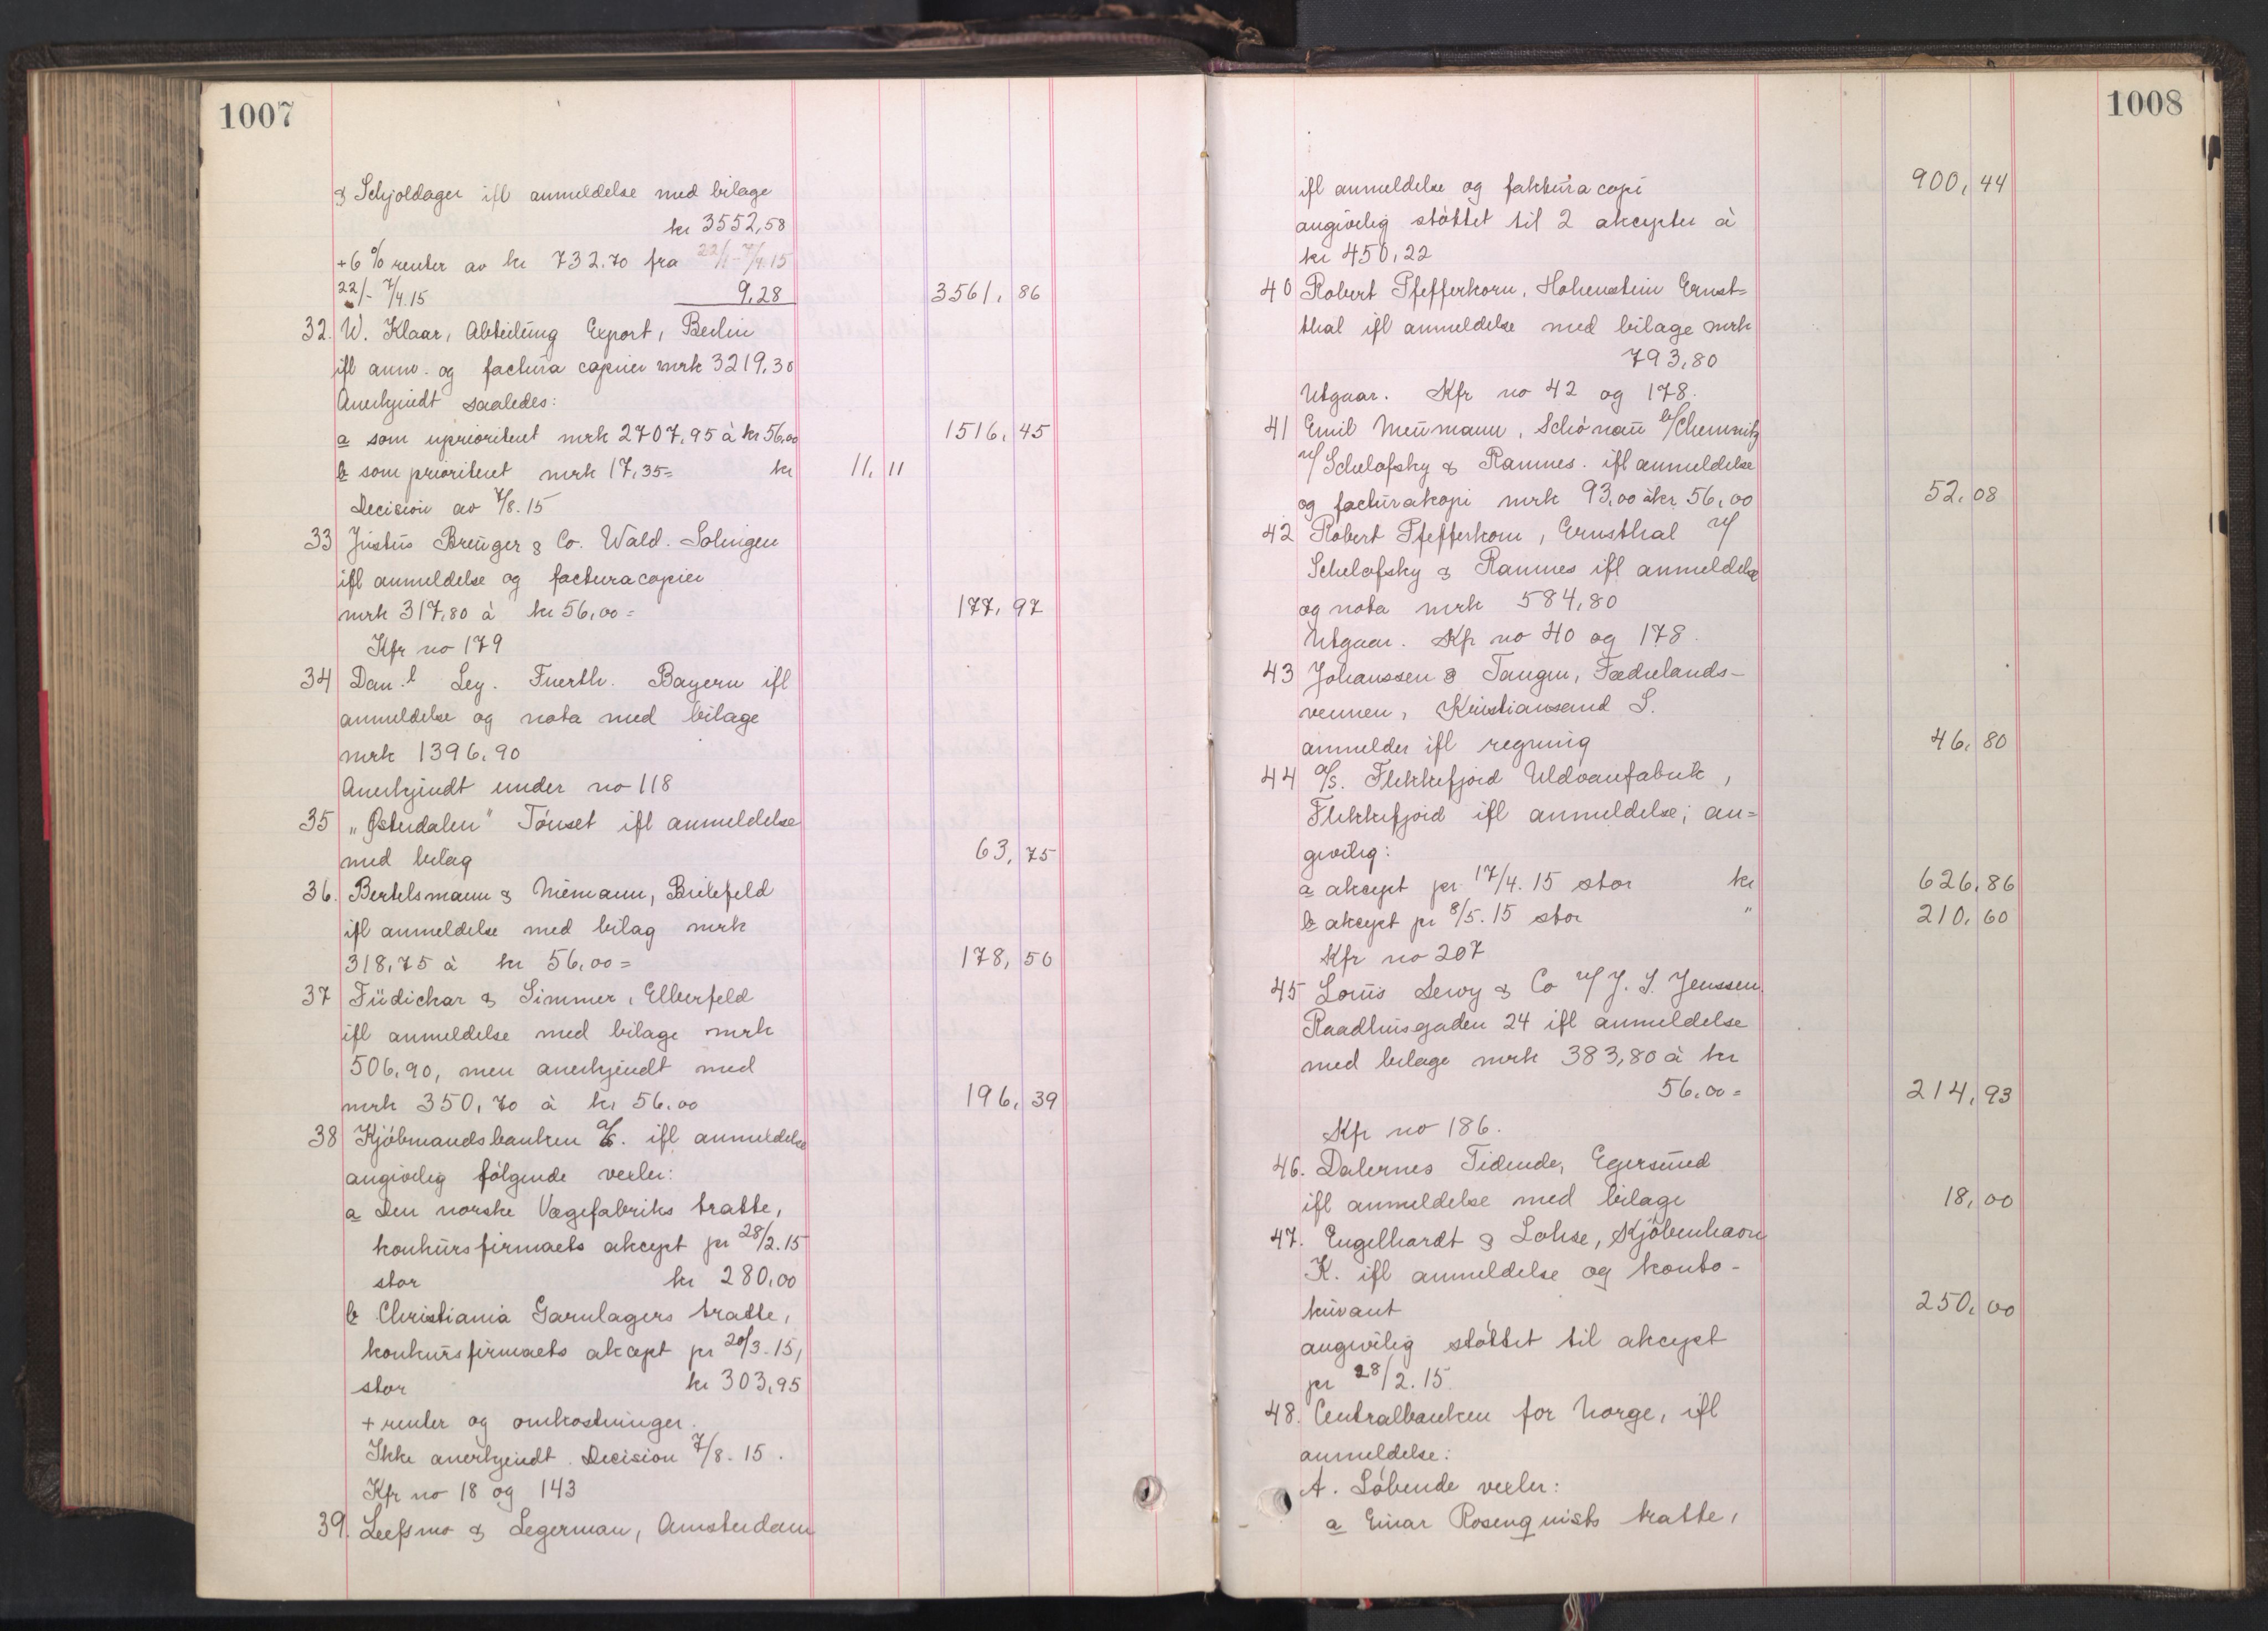 1007
& Schjoldager ifl anmeldelse med bilage
kr 3552,58
+6 % renter av kr 732.70 fra 22/1-7/4.15
22/1- 7/4.15 9,28 3561,86
32. W. Klaar, Abteilung Export, Berlin
ifl anm. og factura copier mrk 3219,30
Anerkjendt saaledes:
a som uprioritert mrk 2707,95 à kr 56,00 1516,45
b som prioritert mrk 17,35= kr 11,11
Decision av 7/8.15
33 Justus Breuger & Co. Wald. Solingen
ifl anmeldelse og facturacopier
mrk 317,80 à kr 56,00= 177,97
Kfr no 179
34 Dan.l Ley. Fuerth. Bayern ifl
anmeldelse og nota med bilage
mrk 1396,90
Anerkjendt under no 118
35 "Østerdalen" Tönset ifl anmeldelse
med bilag 63,75
36. Bertelsmann & Niemann, Bielefeld
ifl anmeldelse med bilag mrk
318,75 à kr 56,00= 178,50
37 Füdickar & Simmer, Elberfeld
ifl anmeldelse med bilage mrk
506,90, men anerkjendt med
mrk 350,70 à kr 56,00 196,39
38 Kjöbmandsbanken A/S. ifl anmeldelse
angivelig fölgende vexler:
a Den norske Vægefabriks tratte,
konkursfirmaets akcept pr 28/2.15
stor kr 280,00
b Christiania Garnlagers tratte,
konkursfirmaets akcept pr 20/3.15,
stor kr 303,95
+ renter og omkostninger.
Ikke anerkjendt. Decision 7/8.15.
Kfr no 18 og 143
39. Leefsma & Legerman, Amsterdam
1008
ifl anmeldelse og faktura copi 900,44
angivelig stöttet til 2 akcepter à
kr 450,22
40 Robert Pfefferkorn, Hohenstein Ernst=
thal ifl anmeldelse med bilage mrk
793,80
Utgaar. Kfr no 42 og 178.
41 Emil Neumann, Schönau b/Chemnitz
v/ Schelofsky & Ramnes. ifl anmeldelse
og facturakopi mrk 93,00 à kr. 56,00 52,08
42 Robert Pfefferkorn, Ernsthal v/
Schelofsky & Ramnes ifl anmeldelse
og nota mrk 584,80
Utgaar. Kfr no 40 og 178.
43 Johanssen & Tangen, Fædrelands-
vennen, Kristiansand S.
anmelder ifl regning 46,80
44 A/S. Flekkefjord Uldvarefabrik,
Flekkefjord ifl anmeldelse; an=
givelig:
a akcept pr 17/4.15 stor kr 626,86
b akcept pr 8/5.15 stor " 210,60
Kfr no 207
45 Louis Levy & Co v/ J. S. Jenssen
Raadhusgaden 24 ifl anmeldelse
med bilage mrk 383,80 à kr
56,00= 214,93
Kfr no 186.
46. Dalernes Tidende, Egersund
ifl anmeldelse med bilage 18,00
47. Engelhardt & Lohse, Kjöbenhavn
K. ifl anmeldelse og konto-
kurant 250,00
angivelig stöttet til akcept
pr 28/2.15.
48. Centralbanken for Norge, ifl
anmeldelse:
A. Löbende vexler:
a Einar Rosenqvists tratte,